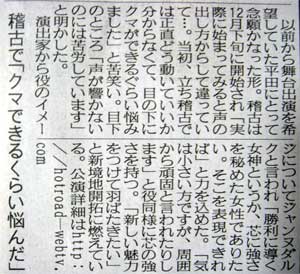 以前から舞台出演を希
望していた平田にとって
念願かなった形。稽古は
12月下旬に開始され「実
際に始まってみると声の
出し方からして違ってい
て…。当初、立ち稽古で
は正直どう動いていいか
分からなくて、目の下に
クマができるくらい悩み
ました」と苦笑い。目下
のところ「声が響かない
のには苦労しています」
と明かした。
演出家から役のイメー
ジについて「ジャンヌダル
クと言われ『勝利に導く
女神というか、芯に強さ
を秘めた女性でありた
い。そこを表現できれ
ば」と力を込めた。「気
は小さい方ですが、周囲
から頑固と言われたりし
ます」と役同様に芯の強
さを持つ。「新しい魅力
をつけて羽ばたきたい」
と新境地開拓に燃えてい
る。公演詳細はhttp:
//hotroad-webtv.
com
稽古で「クマできるくらい悩んだ」